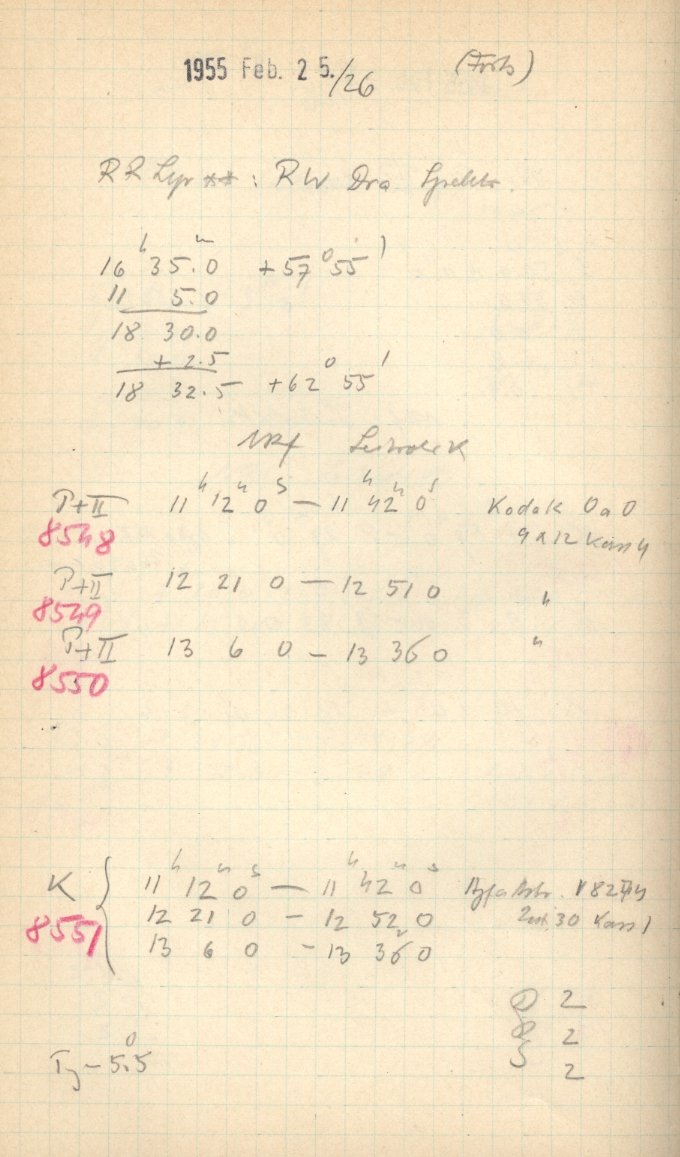 1955 Feb. 25./26 (Forts)
RR Lyr ** : RW Dra Spektr.
16ʰ 35ᵐ.0 +57° 55'
11 5.0
18 30.0
+ 2.5
18 32.5 +62° 55'
P+II 11ʰ 12ᵐ 0ˢ — 11ʰ 42ᵐ 0ˢ Kodak OaO
8548 9x12 Kass 4
P+II 12 21 0 — 12 51 0 "
8549
P+II 13 6 0 — 13 36 0 "
8550
K { 11ʰ 12ᵐ 0ˢ — 11ʰ 42ᵐ 0ˢ Agfa Astr.
12 21 0 — 12 52 0 30 Kass 1
8551
13 6 0 — 13 36 0
D 2
2
S 2
T — 5°.5